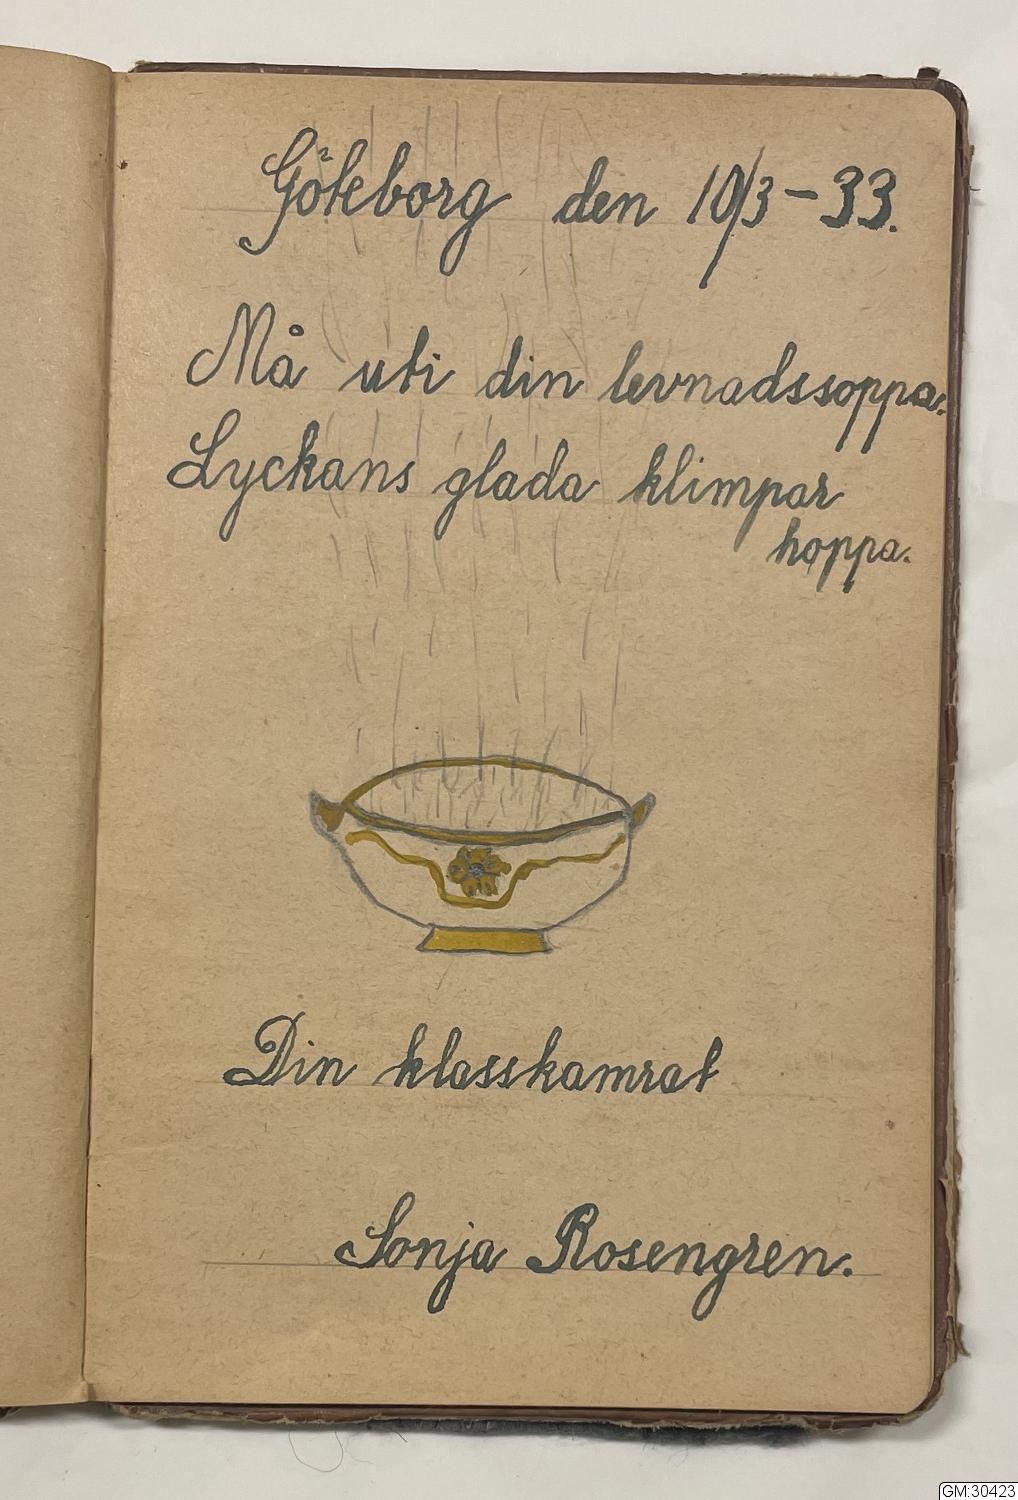 Göteborg den 10/3-33.
Må uti din levnadssoppa.
Lyckans glada klimpar
hoppa.
Din klasskamrat
Sonja Rosengren.
GM:30423